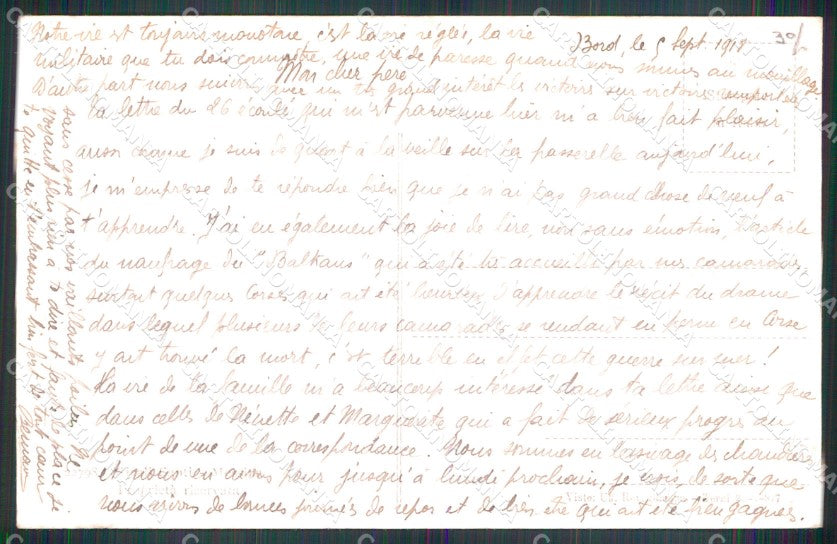 Bord, le 5 Sept 1918
Mon cher père
La lettre du 26 écoulé qui m'est parvenue hier m'a bien fait plaisir,
aussi comme je suis de quart à la veille sur la passerelle aujourd'hui,
je m'empresse de te répondre bien que je n'ai pas grand chose de neuf à
t'apprendre. J'ai eu également la joie de lire, non sans émotion, l'article
du naufrage du "Balkans" qui a été lu accueilli par mes camarades
surtout quelques Corses qui ont été heureux d'apprendre le récit du drame
dans lequel plusieurs leurs camarades se rendant en perme en Corse
y ont trouvé la mort, c'est terrible en effet cette guerre sur mer!
La vie de la famille m'a beaucoup intéressé dans ta lettre ainsi que
dans celles de Ninette et Marguerite qui a fait de sérieux progrès au
point de vue de la correspondance. Nous sommes en lavage de chaudière
et nous en avons pour jusqu'à lundi prochain, je de sorte que
nous aurons de bonnes journées de repos et de qui ont été bien gagnées.
Notre vie est toujours monotone c'est la vie réglée, la vie
militaire que tu dois connaître, une vie de paresse quand nous sommes au mouillage
D'autre part nous suivons avec un très grand intérêt les victoires sur victoires remportées
sans cesse par nos vaillants poilus. Ne
voyant plus rien à te dire et faute de place je
te quitte en t'embrassant bien fort de tout coeur